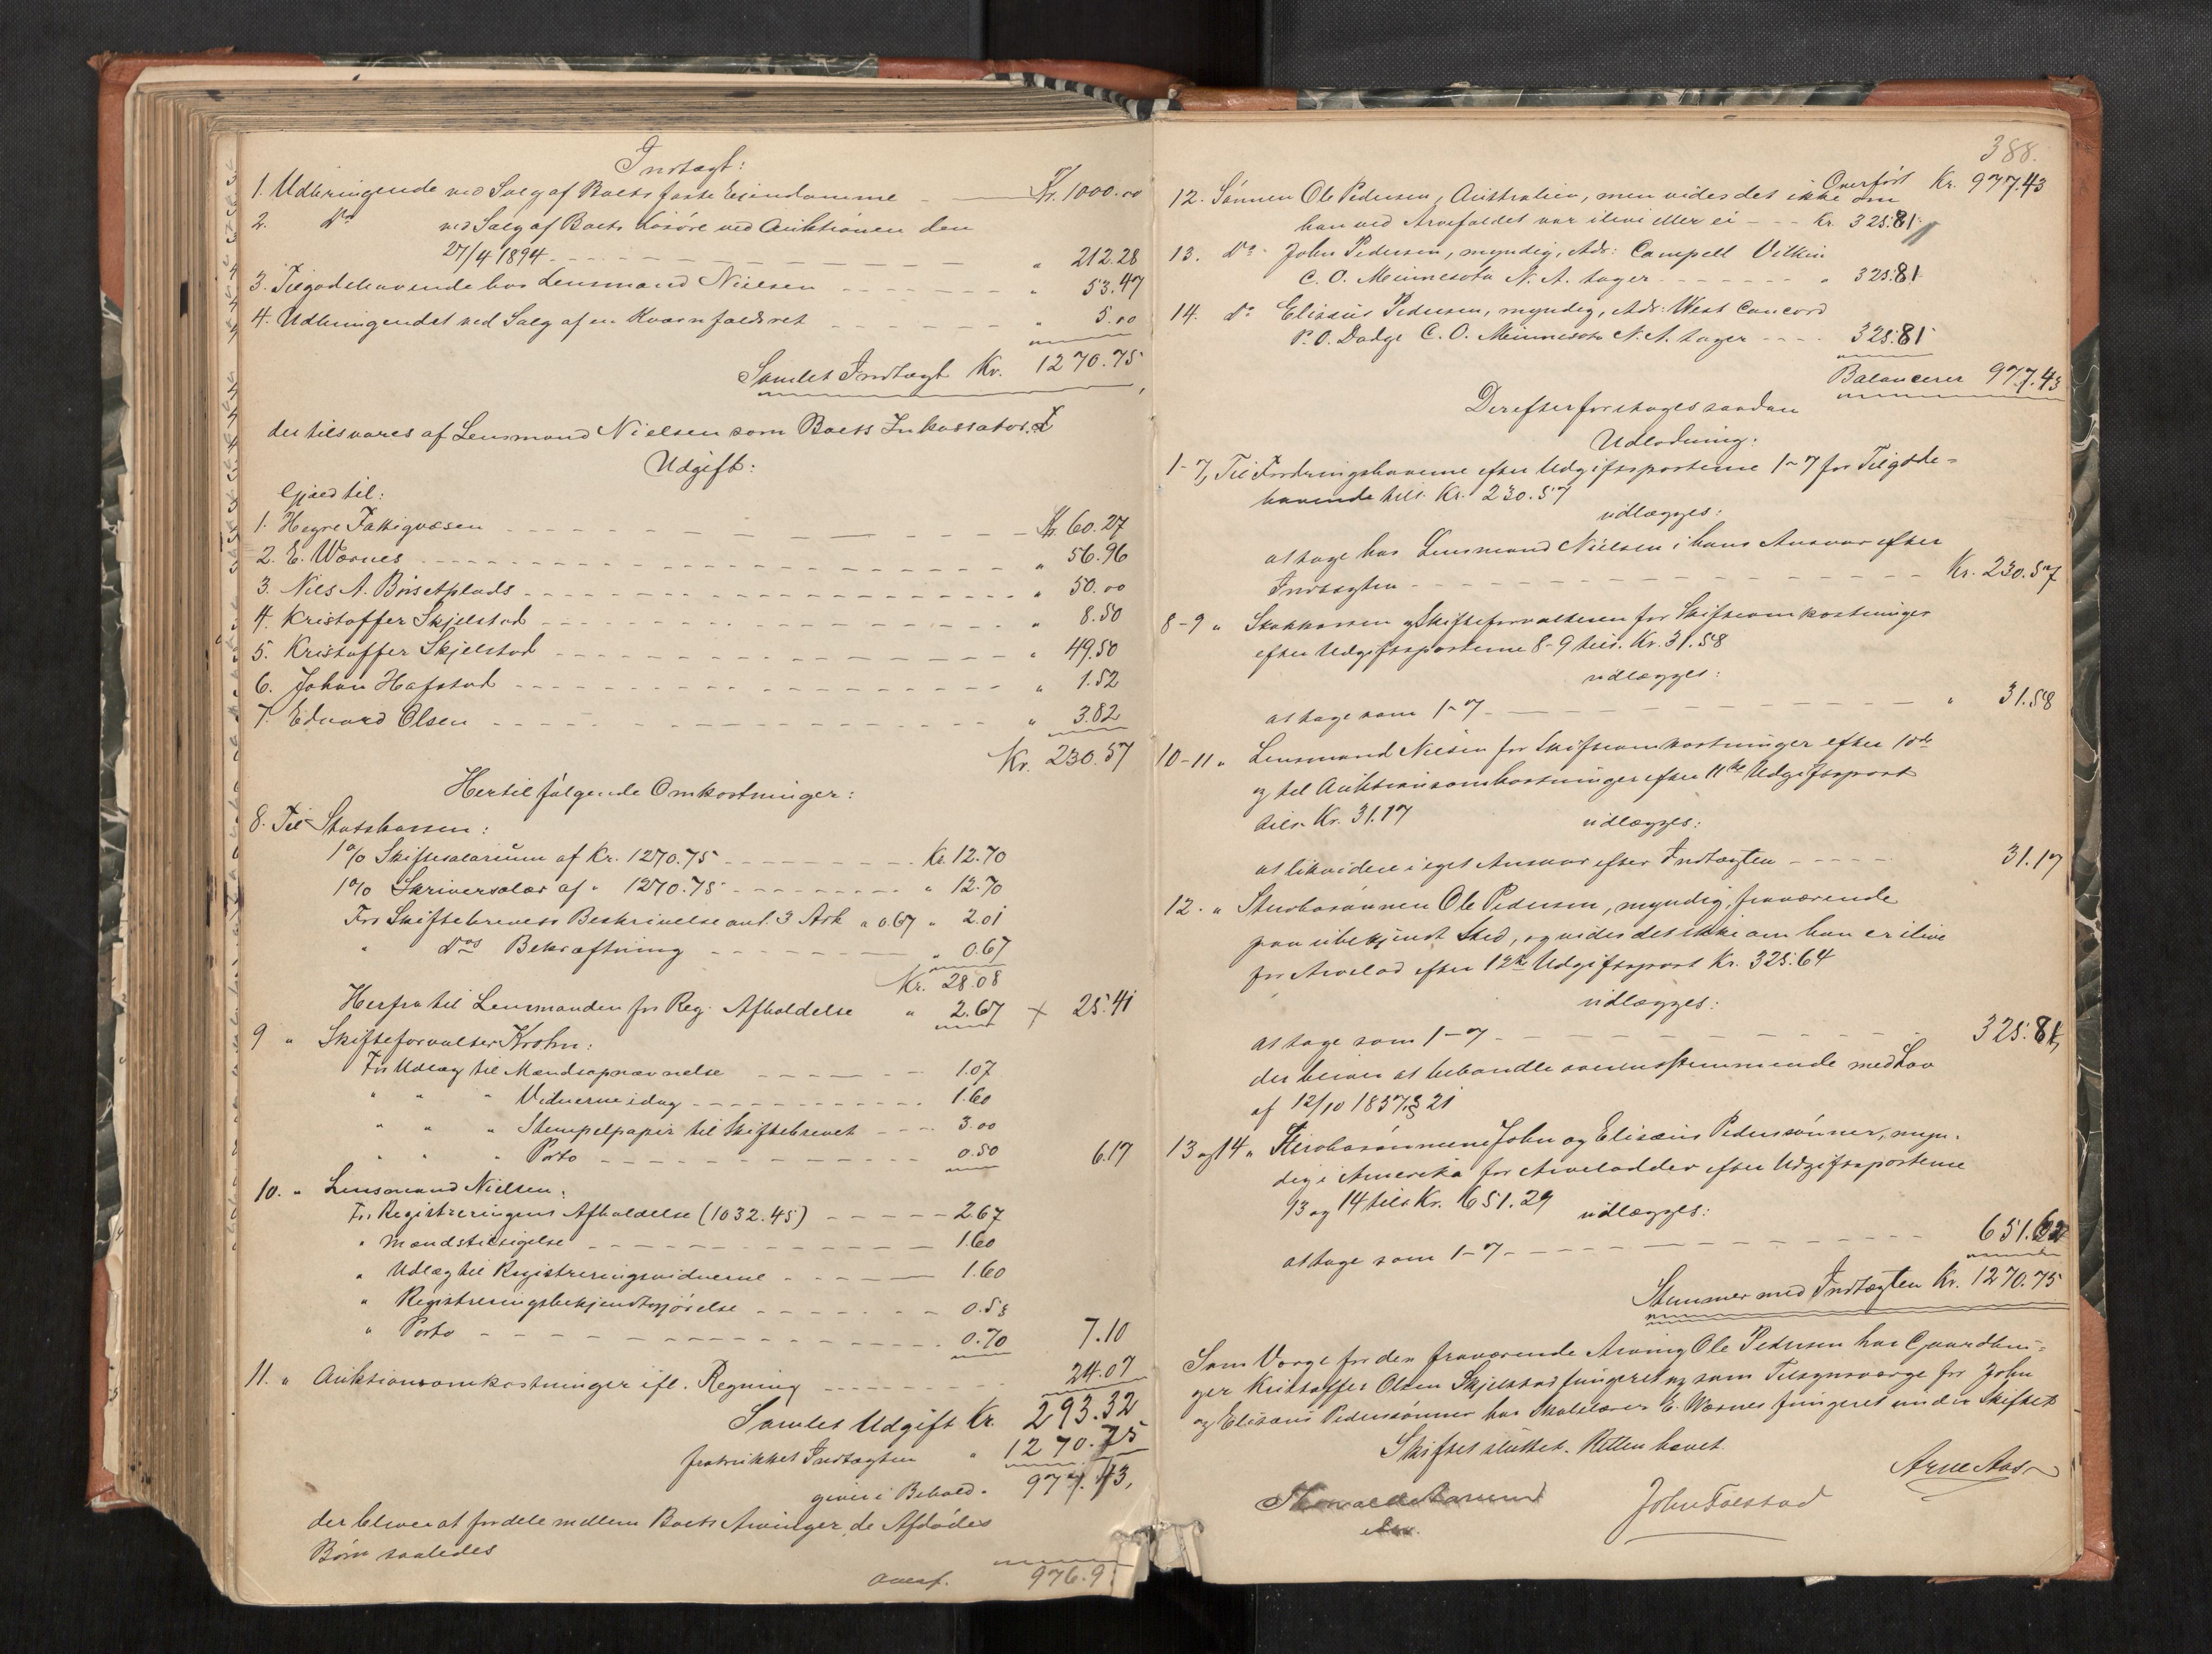 Indtægt:
1. Udbringende ved Salg af Boets faste Eiendomme - Kr. 1000.00
2. Do ved Salg af Boets Løsøre ved Auktionen den
27/4 1894 - " 212.28
3. Tilgodehavende hos Lensmand Nielsen - " 53.47
4. Udbringendet ved Salg af en Kværnfaldsret - " 5.00
Samlet Indtægt Kr. 1270.75
der tilsvares af Lensmand Nielsen som Boets Inkassator.
Udgift:
Gjæld til:
1. Hegre Fattigvæsen - Kr. 60.27
2. E. Wærnes - " 56.96
3. Nils A. Börsetplads - " 50.00
4. Kristoffer Skjelstad - " 8.50
5. Kristoffer Skjelstad - " 49.50
6. Johan Hafstad - " 1.52
7. Edvard Olsen - " 3.82
Kr. 230.57
Hertil følgende Omkostninger:
8. Til Statskassen:
1% Skiftesalarium af Kr. 1270.75 - Kr. 12.70
1% Skriversalær af " 1270.75 - " 12.70
For Skiftebrevets Beskrivelse ant. 3 Ark a 0.67 " 2.01
" dos Bekræftning - " 0.67
Kr. 28.08
Herfra til Lensmanden for Reg. Afholdelse " 2.67 + 25.41
9 " Skifteforvalter Krohn:
For Udlæg til Mandsopnævnelse - 1.07
" " " Vidnerne idag - 1.60
" " " Stempelpapir til Skiftebrevet - 3.00
" " " Porto - 0.50 6.17
10. " Lensmand Nielsen:
For Registreringens Afholdelse (1032.45) - 2.67
" Mændstilsigelse - 1.60
" Udlæg til Registreringsvidnerne - 1.60
" Registreringsbekjendtgjörelse - 0.53
" Porto - 0.70 7.10
11. " Auktionsomkostninger ifl. Regning - 24.07
Samlet Udgift Kr. 293.32
fratrukket Indtægten " 1270.75
giver i Behold " 977.43,
der bliver at fordele mellem Boets Arvinger, de Afdødes
Børn saaledes
Overf. 976.9
388.
Overført Kr. 977.43
12. Sønnen Ole Pedersen, Australien, men vides det ikke om
han ved Arvefaldet var ilive eller ei - Kr. 325.81
13. Do John Pedersen, myndig, Adr: Campell Vilkin
C. O. Minnesota N. A. tager - " 325.81
14. Do Elisæus Pedersen, myndig, Adr: West Concord
P. O. Dodge C. O. Minnesota N. A. tager - 325.81
Balancerer 977.43
Derefter foretoges saadan
Udlodning:
1-7, Til Fordringshaverne efter Udgiftsposterne 1-7 for Tilgode-
havende tils. Kr. 230.57
udlægges:
at tage hos Lensmand Nielsen i hans Ansvar efter
Indtægten - Kr. 230.57
8-9 " Statskassen og Skifteforvalteren for Skifteomkostninger
efter Udgiftsposterne 8-9 tils. Kr. 31.58
udlægges:
at tage som 1-7 - " 31.58
10-11 " Lensmand Nielsen for Skifteomkostninger efter 10de
og til Auktionsomkostninger efter 11te Udgiftspost
tils. Kr. 31.17 udlægges:
at likvidere i eget Ansvar efter Indtægten - 31.17
12. " Stervbosønnen Ole Pedersen, myndig, fraværende
paa ubekjendt Sted, og vides det ikke om han er ilive
for Arvelod efter 12te Udgiftspost Kr. 325.64
udlægges:
at tage som 1-7 - 325.81,
der bliver at behandle overensstemmende med Lov
af 12/10 1857 § 21
13 og 14 " Stervbosønnerne John og Elisæus Pedersønner, myn-
dige i Amerika for Arvelodder efter Udgiftsposterne
13 og 14 tils. Kr. 651.29 udlægges:
at tage som 1-7 - 651.62
Stemmer med Indtægten Kr. 1270.75
Som Værge for den fraværende Arving Ole Pedersen har Gaardbru-
ger Kristoffer Olsen Skjelstad fungeret og som Tilsynsværge for John
og Elisæus Pedersønner har Skolelærer E. Wærnes fungeret under Skiftet
Skiftet sluttet. Retten hævet.
Arne Aas
John Folstad